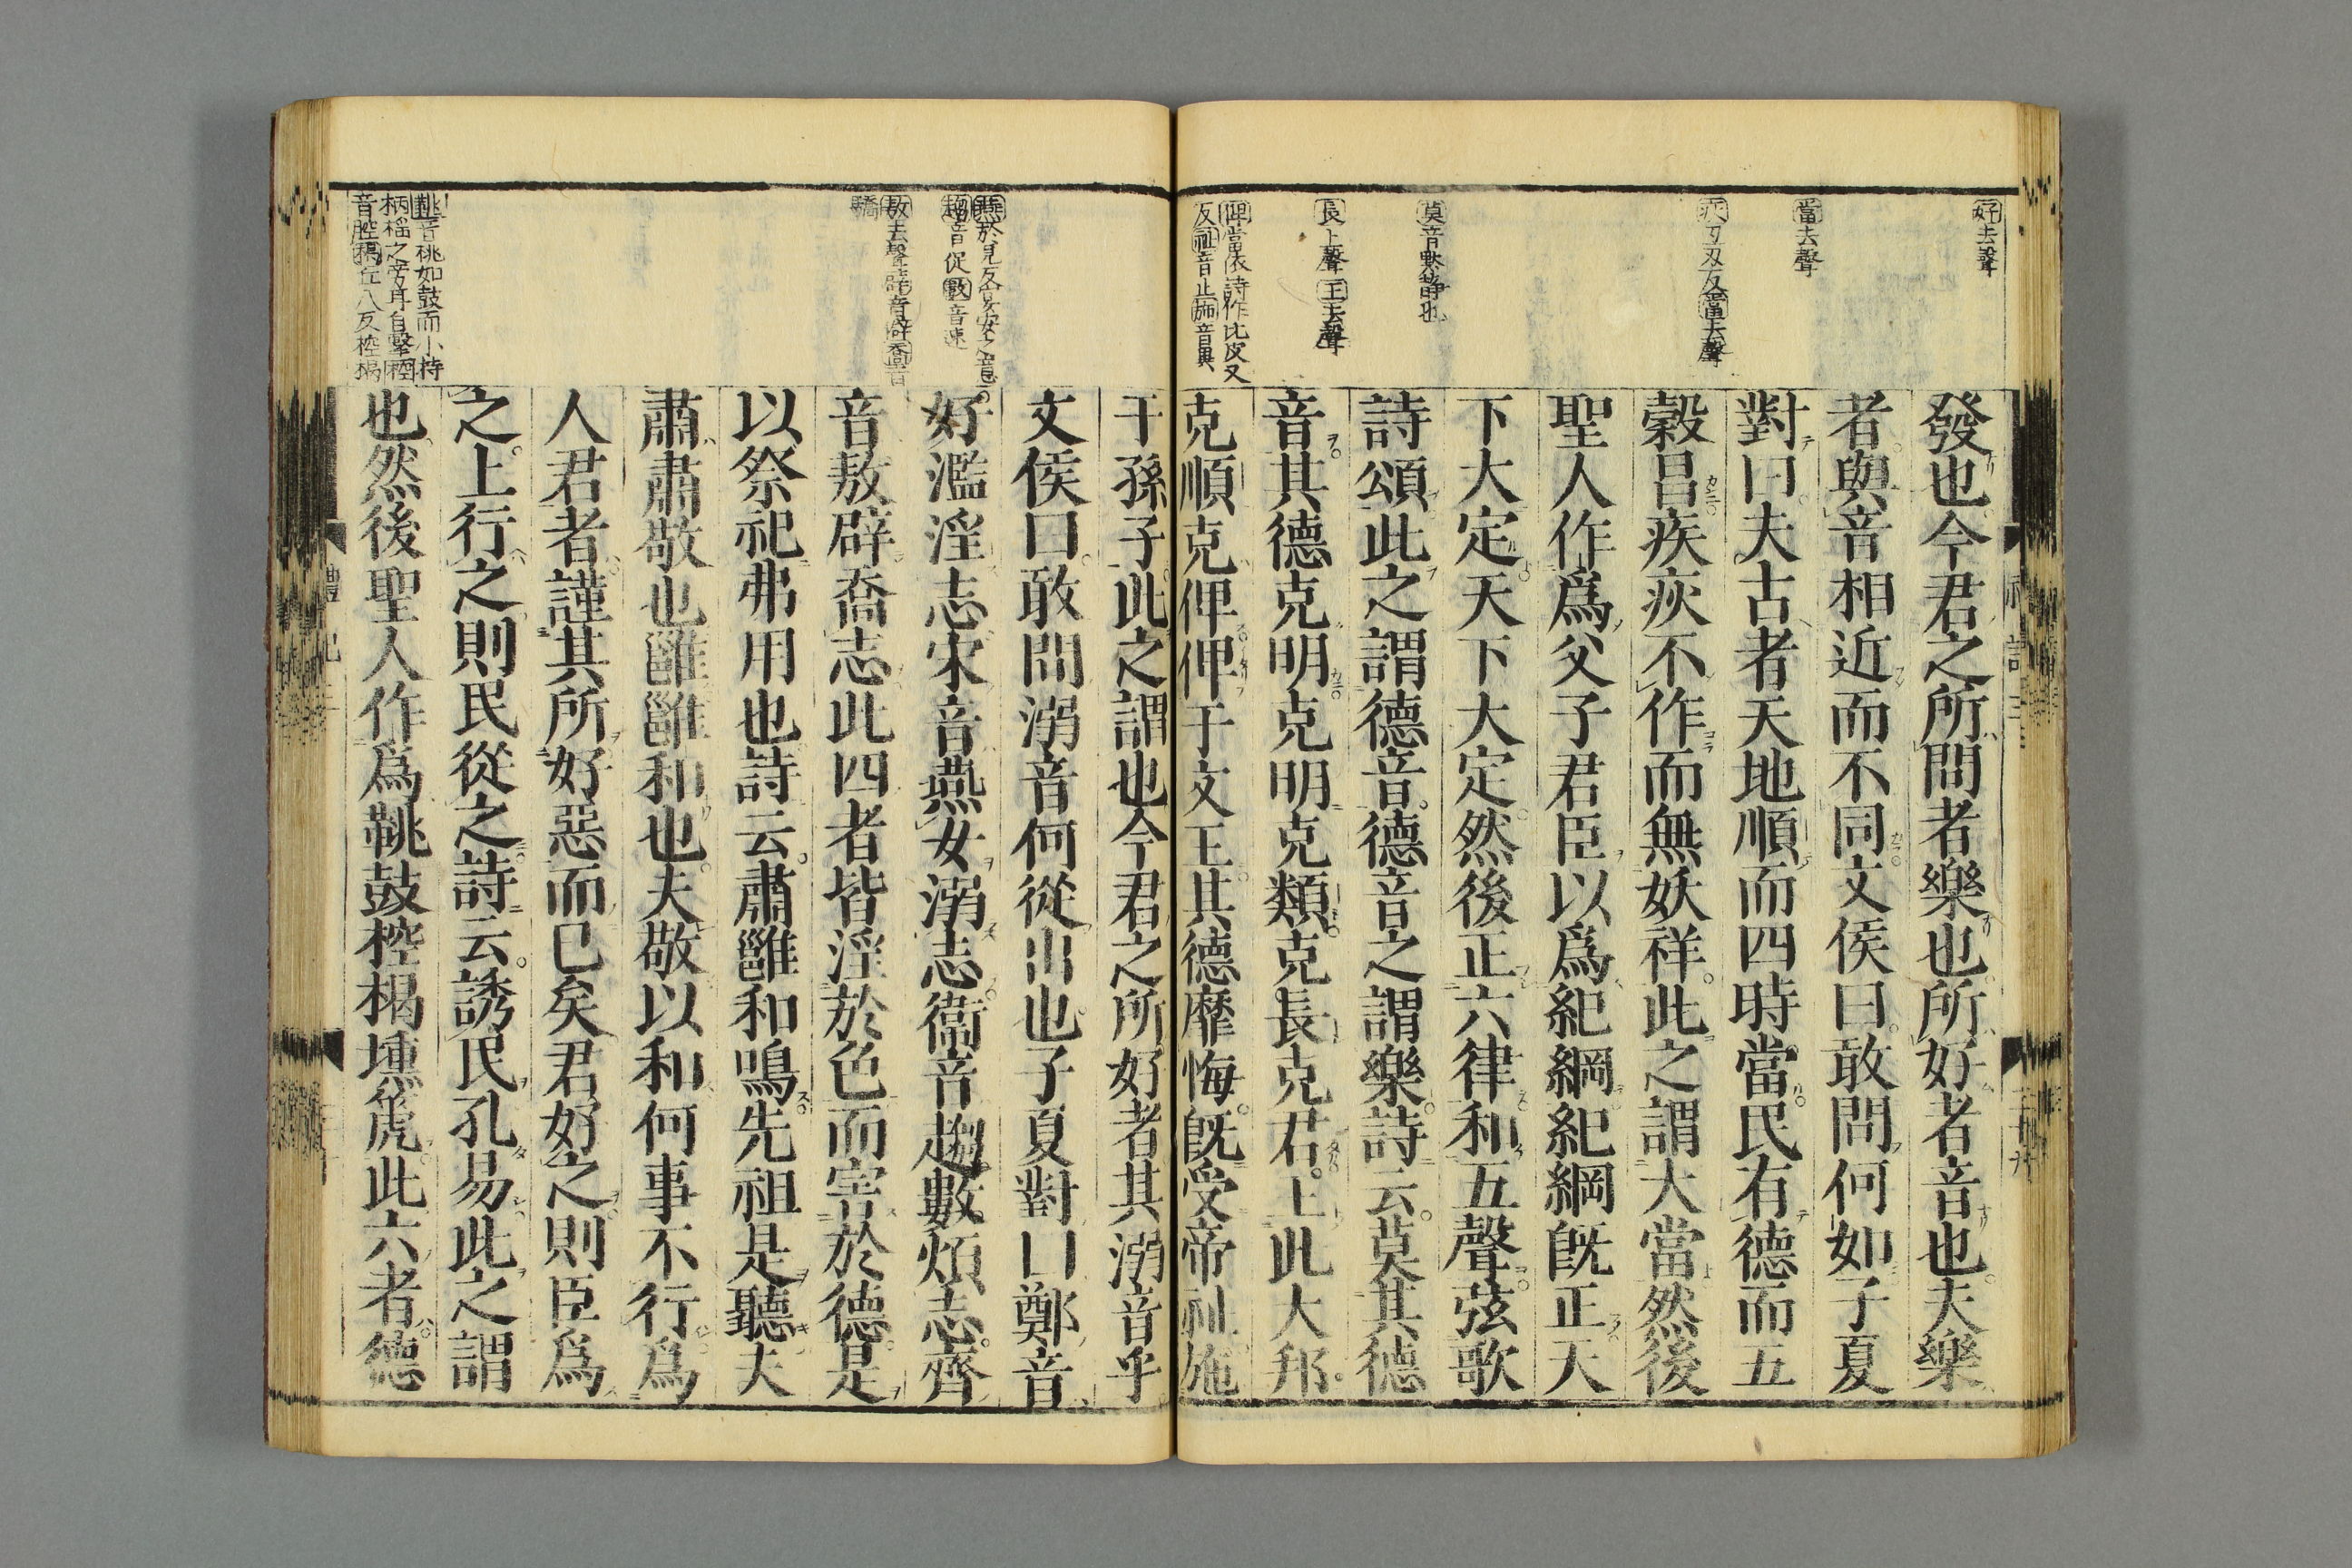 好去聲
當去聲
疢丑刄反當去聲
莫音黙静也
長上聲王去聲
俾當依詩作比皮又
反祉音止施音異
發也今君之所問者樂也所好者音也夫樂
者與音相近而不同文侯曰敢問何如子夏
對曰夫古者天地順而四時當民有德而五
穀昌疾疢不作而無妖祥此之謂大當然後
聖人作爲父子君臣以爲紀綱紀綱既正天
下大定天下大定然後正六律和五聲弦歌
詩頌此之謂德音德音之謂樂詩云莫其德
音其德克明克明克類克長克君王此大邦
克順克俾俾于文王其德靡悔既受帝祉施
燕於見反宴安之意
趨音促數音速
敖去聲辟音僻喬音
驕
鞉音桃如鼓而小持
柄榣之旁耳自擊椌
音腔楬丘八反椌楬
于孫子此之謂也今君之所好者其溺音乎
文侯曰敢問溺音何從出也子夏對曰鄭音
好濫淫志宋音燕女溺志衞音趨數煩志齊
音敖辟喬志此四者皆淫於色而害於德是
以祭祀弗用也詩云肅雝和鳴先祖是聽夫
肅肅敬也雝雝和也夫敬以和何事不行爲
人君者謹其所好惡而已矣君好之則臣爲
之上行之則民從之詩云誘民孔易此之謂
也然後聖人作爲鞉鼓椌楬壎箎此六者德
禮記三